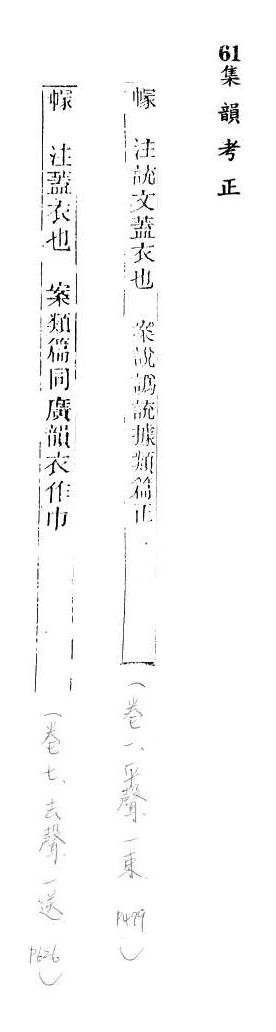 61集韻考正
幏 注說文蓋衣也 案說譌説據類篇正
(卷一、平聲、一東 P499)
幏 注蓋衣也 案類篇同廣韻衣作巾
(卷七、去聲、一送 P626)